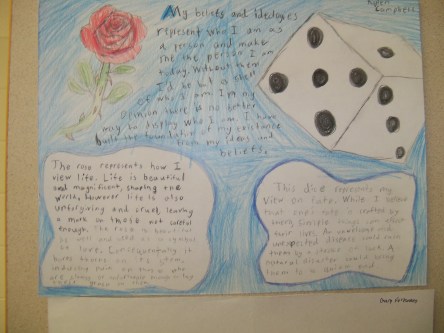 Kylen
Campbell
My beliefs and ideologies
represent who I am as
a person and make
me the person I am
today. Without them
I'd be but a shell
of who I am. In my
opinion there is no better
way to display who I am. I have
built the foundation of my existance
from my ideas and
beliefs.
The rose represents how I
view life. Life is beautiful
and magnificent, shaping the
world, however life is also
unforgiving and cruel, leaving
a mark on those not careful
enough. The rose is beautiful
as well and used as a symbol
of love. Consequently it
bares thorns on its stem,
inducing pain on those who
This dice represents my
view on fate. While I believe
that ones fate is crafted by
many, simple things can affect
their lives. An
unexpected disease could save
them by a clover of luck. A
natural disaster could bring
them to a